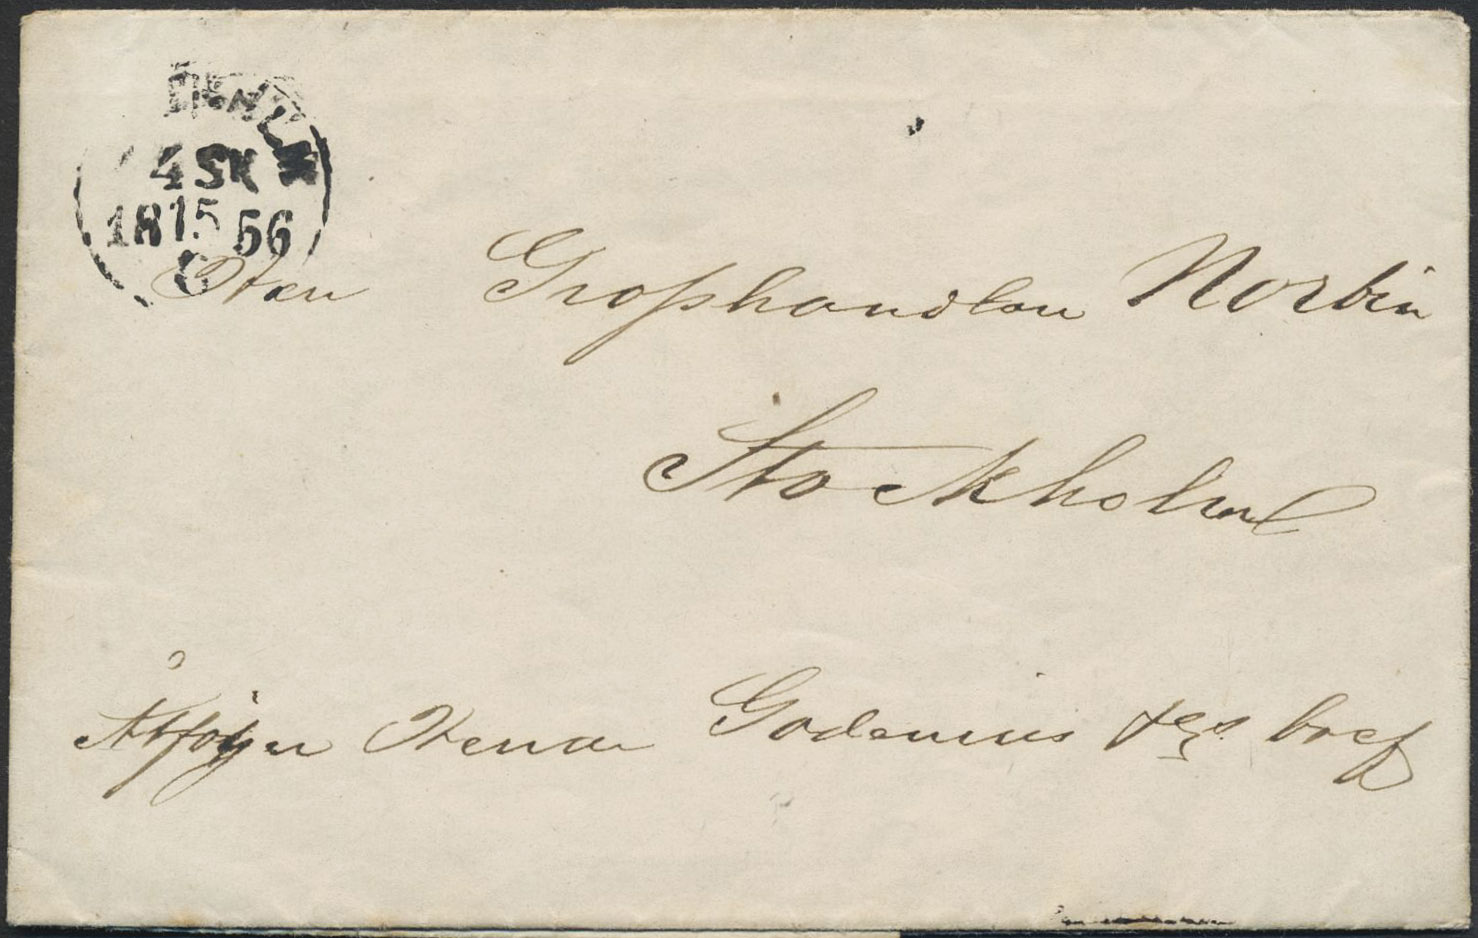 4 SK
18 15 56
6
Herr Grosshandlan Norbin
Stockholm
Åtföljer Herrar Godenius bref